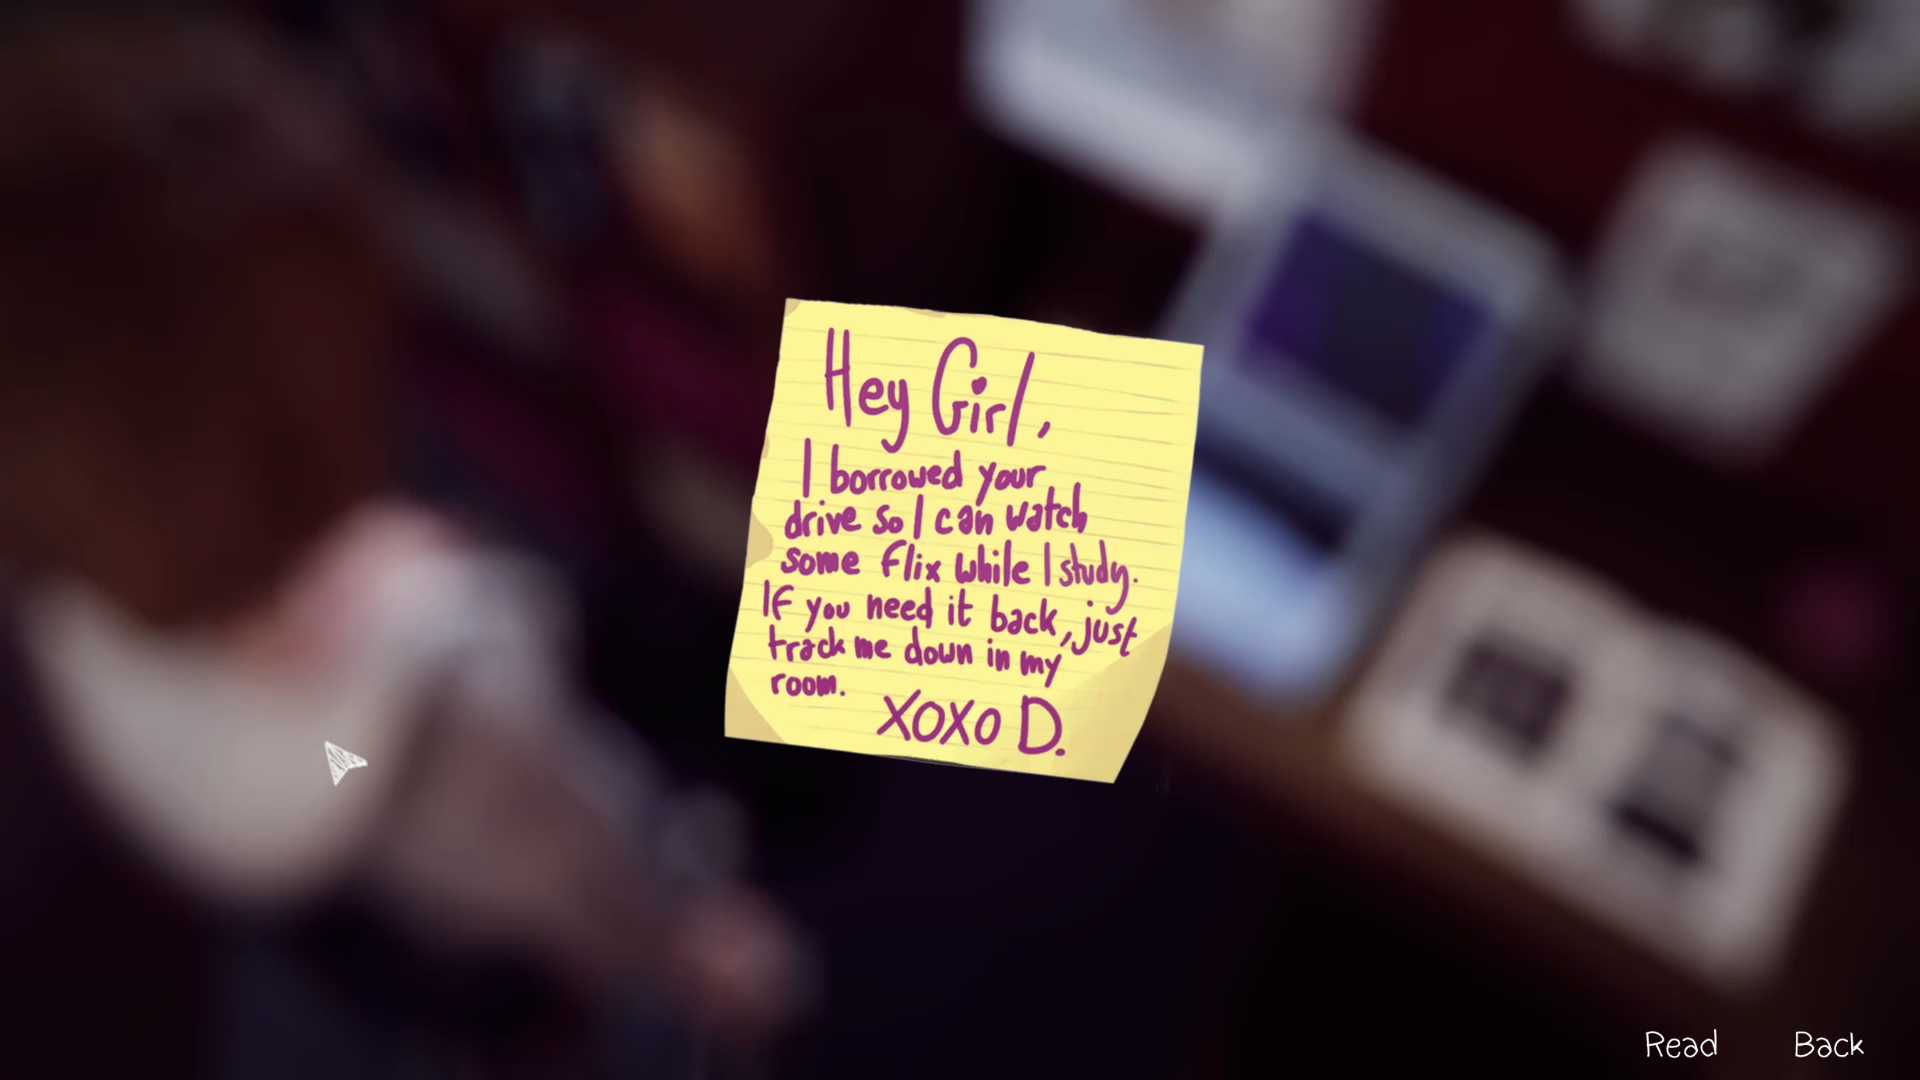 Hey Girl,
I borrowed your
drive so I can watch
some flix while I study.
If you need it back, just
track me down in my
room.
XOXO D.
Read Back